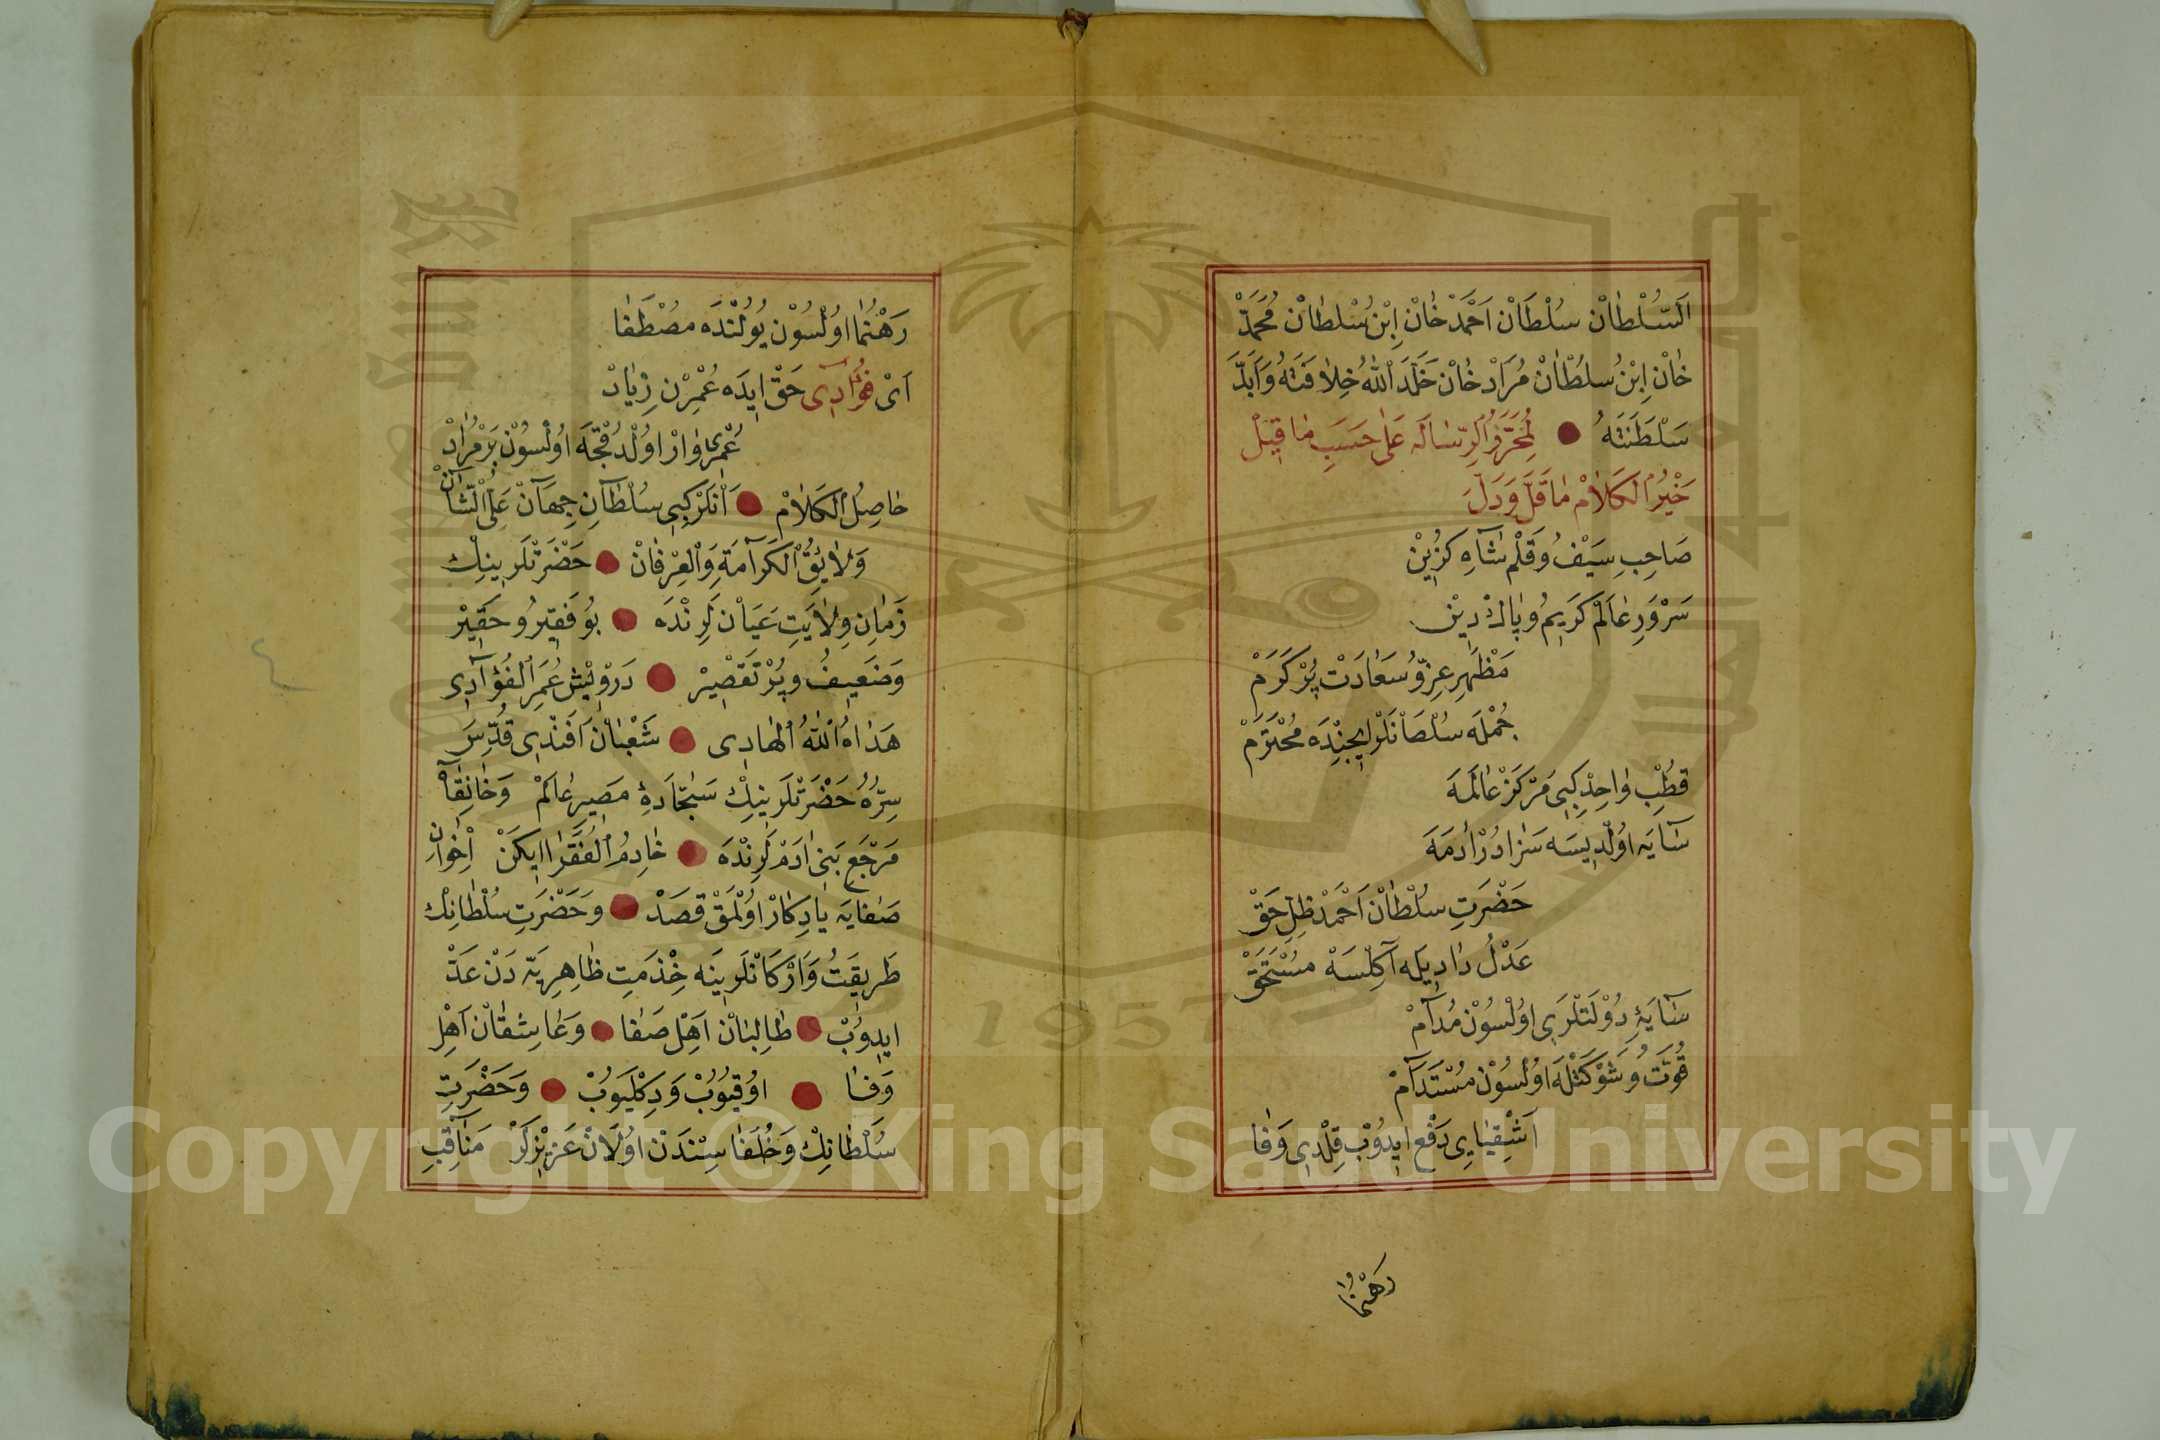 اَلسُّلْطَانْ سُلْطَانْ اَحْمَدْ خَانْ اِبْنُ سُلْطَانْ مُحَمَّدْ
خَانْ اِبْنُ سُلْطَانْ مُرَادْ خَانْ خَلَّدَ اللّٰهُ خِلَافَتَهُ وَاَبَّدَ
سَلْطَنَتَهُ لِمُحَرِّرُ الرِّسَالَه عَلٰى حَسَبِ مَا قِيلْ
خَيْرُ الْكَلَامْ مَا قَلَّ وَدَلَّ
صَاحِبِ سَيْفُ وَقَلَمْ شَاهِ كُزِينْ
سَرْوَرِ عَالَمْ كَرِيمُ وپَاكْ دِينْ
مَظْهَرِ عِزُّ وُ سَعَادَتْ پُرْ كَرَمْ
جُمْلَه سُلْطَانْلَرْ اِيچِنْدَه مُحْتَرَمْ
قُطْبِ وَاحِدْ كِبِى مَرْكَزْ عَالَمَه
سَايَه اُولْدِيسَه سَزَادُرْ اٰدَمَه
حَضْرَتِ سُلْطَانْ اَحْمَدْ ظِلِّ حَقْ
عَدْلُ دَادِيلَه اٰكِلْسَهْ مُسْتَحَقْ
سَايَۀِ دَوْلَتْلَرِى اُولْسُونْ مُدَامْ
قُوَّتُ وَشَوْكَتْلَه اُولْسُونْ مُسْتَدَامْ
اَشْقِيَايِى دَفْعْ اِيدُوبْ قِلْدِى وَفَا
رَهْنُمَا
رَهْنُمَا اُولْسُونْ يُولُنْدَه مُصْطَفَا
اَىْ فُؤَادِى حَقْ ايدَه عُمْرِنْ زِيَادْ
عُمْرِى وَارْ اُولْدُقْجَه اُولْسُونْ بَرْ مُرَادْ
حَاصِلُ الْكَلَامْ اَنْلَرْ كِبِى سُلْطَانِ جِهَانْ عَلِىُّ الشَّانْ
وَلَايِقُ الْكَرَامَةِ وَالْعِرْفَانْ حَضْرَتْلَرِينِكْ
زَمَانِ وِلَايَتِ عَيَانْ لَرِنْدَه بُو فَقِيرُ و حَقِيرْ
وَضَعِيفُ و پُرْ تَقْصِيرْ دَرْوِيشْ عُمَرِ الْفُؤَادِى
هَدَاهُ اللّٰهُ الْهَادِى شَعْبَانْ اَفَنْدِى قُدِّسَ
سِرُّهُ حَضْرَتْلَرِينِكْ سَجَّادَۀِ مَصِيرِ عَالَمْ وَخَانِقَاهْ
مَرْجَعِ بَنِى اٰدَمْ لَرِنْدَه خَادِمُ الْفُقَرَا اِيكَنْ اِخْوَانِ
صَفَايَه يَادِكَارْ اُولْمَقْ قَصَدْ وَحَضْرَتِ سُلْطَانِكْ
طَرِيقَتُ وَاَرْكَانْلَرِينَه خِذْمَتِ ظَاهِرِيَّه دَنْ عَدْ
اِيدُوبْ طَالِبَانْ اَهْلِ صَفَا وَعَاشِقَانْ اَهْلِ
وَفَا اُوقِيُوبْ وَدِكْلَيُوبْ وَحَضْرَتِ
سُلْطَانِكْ وَخُلَفَاسِنْدَنْ اُولَانْ عَزِيزْلَرْ مَنَاقِبِ
Copyright © King Saud University
1957